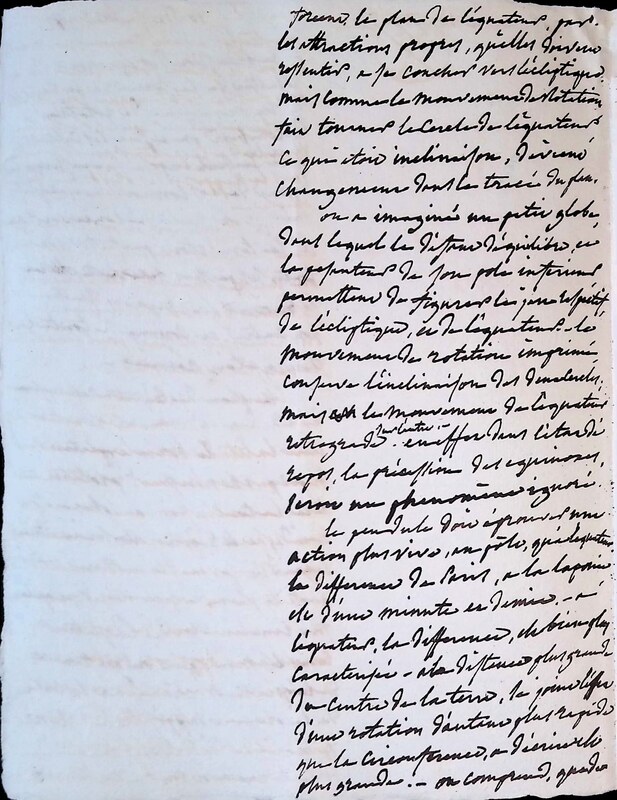 forcent, le plan de l'équateur, par
les attractions propres, qu'elles doivent
ressentir, a se coucher vers l'écliptique.
mais comme le mouvement de rotation
fait tourner le cercle de l'équateur
ce qui étoit inclinaison, devient
changement dans le tracé du plan.
on a imaginé un petit globe,
dans lequel le défaut d'équilibre, et
la pesanteur de son pole inférieur
permettent de figurer le jeu respectif
de l'écliptique, et de l'équateur. le
mouvement de rotation imprimé,
conserve l'inclinaison des deux cercles.
mais le mouvement de l'équateur
retrograde sur l'autre. en effet dans l'état de
repos, la précession des equinoxes,
seroit un phenomène ignoré.
le pendule doit éprouver une
action plus vive, au pôle, qu'a l'équateur
la difference de Paris, a la laponie
est d'une minute et demie. - a
l'équateur, la différence, est bien plus
caractérisée - a la distance plus grande
du centre de la terre, se joint l'effet
d'une rotation d'autant plus rapide
que la circonférence, a décrire est
plus grande. - on comprend, que de